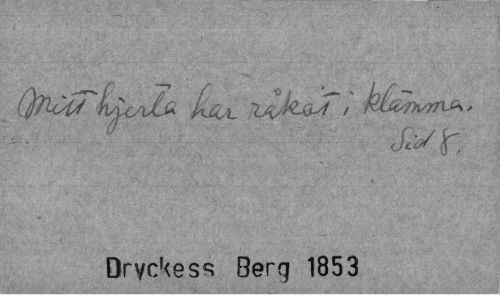 Mitt hjerta har råkat i klämma.
Sid 8.
Dryckess Berg 1853